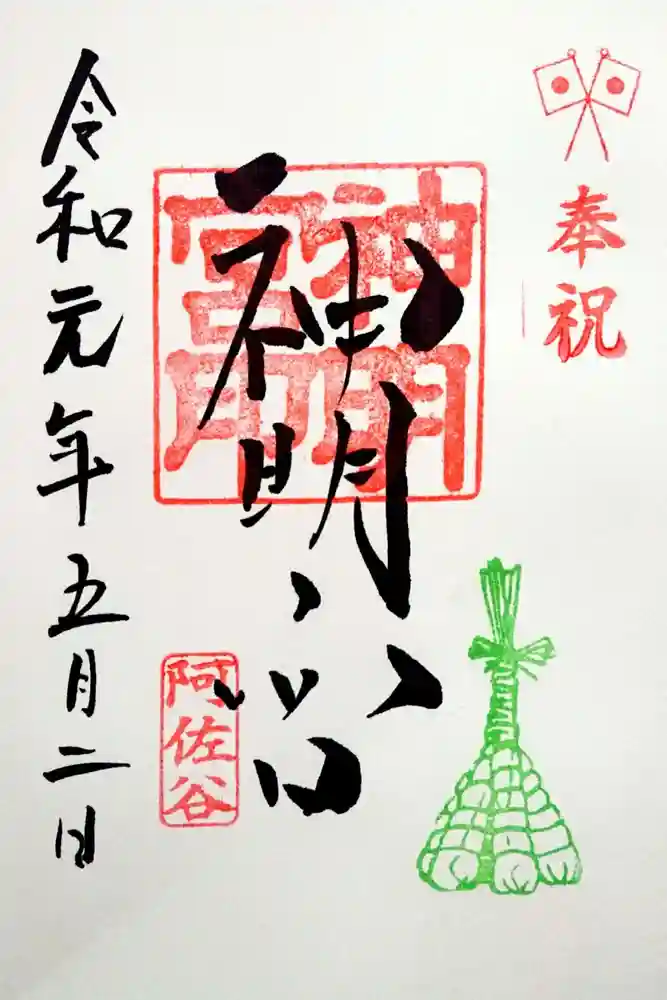 奉祝
神明宮
神明宮印
阿佐谷
令和元年五月二日